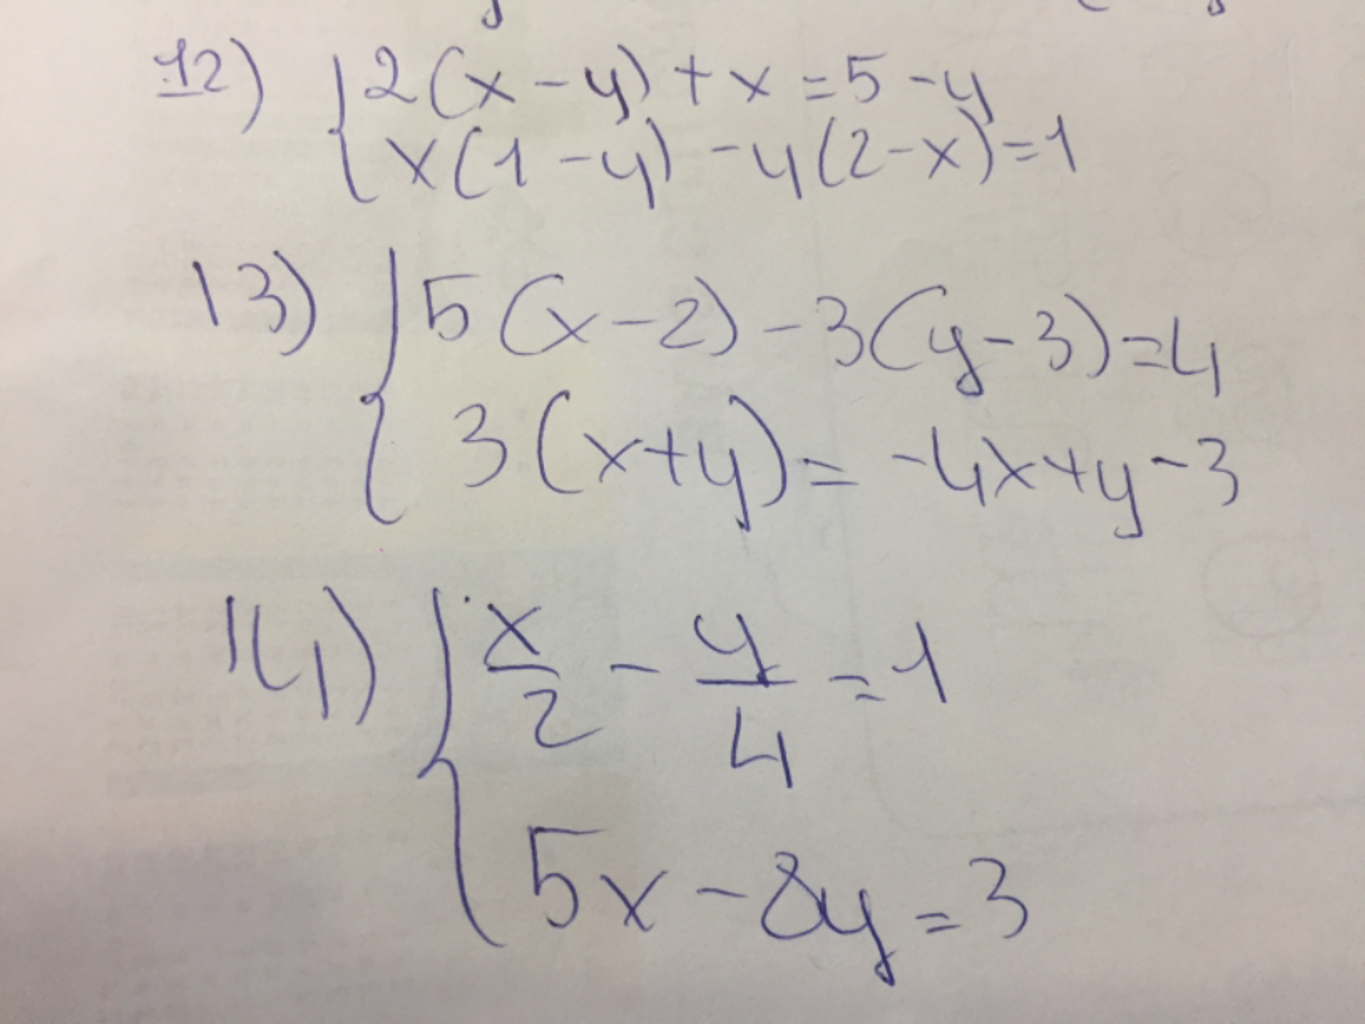 12) { 2(x-y)+x=5-y
x(1-y)-y(2-x)=1
13) { 5(x-2)-3(y-3)=4
3(x+y)=-4x+y-3
14) { x/2 - y/4 = 1
5x-8y=3